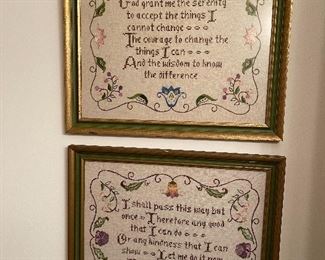 God grant me the serenity
to accept the things I
cannot change
The courage to change the
things I can
And the wisdom to know
the difference
I shall pass this way but
once I herefore any good
that I can do
Or any kindness that I can
show Let me do it now